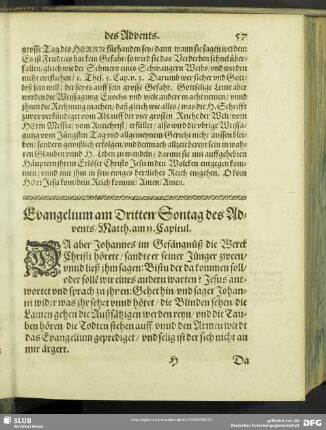 des Advents. 57
grosse Tag des HERRN fürhanden sey/ dann wann sie sagen werden:
Es ist Friede/ es hat kein Gefahr/ so wird sie das Verderben schnell über-
fallen/ gleich wie der Schmertz eines Schwangern Weibs/ vnd werden
nicht entfliehen/ 1. Thes. 5. Cap. v. 3. Darumb wer sicher vnd Gott-
loß sein will/ der sey es auff sein grosse Gefahr. Gottselige Leute aber
werden die Weissagung Enochs vnd viele andere in acht nemen/ vnd
ihnen die Rechnung machen/ daß gleich wie alles/ was die H. Schrifft
zuvor verkündiget vom Ablauff der vier grossen Reiche der Welt/ vom
HErrn Messia/ vom Antichrist/ erfüllet: also wird die vbrige Weissa-
gung vom Jüngsten Tag vnd allgemeinem Gericht nicht aussen blei-
ben/ sondern gewißlich erfolgen/ vnd demnach allzeit bereit sein in wah-
ren Glauben vnnd H. Leben zu wandeln/ darmit sie mit auffgehabten
Häuptern ihrem Erlöser Christo Jesu in den Wolcken entgegen kom-
men/ vnd mit ihm in sein ewiges herrliches Reich eingehen. O kom
HErr Jesu kom/ dein Reich komme/ Amen/ Amen.
Evangelium am Dritten Sontag des Ad-
vents/ Matth. am 11. Capitul.
DA aber Johannes im Gefängnüß die Werck
Christi hörete/ sandte er seiner Jünger zween/
vnnd ließ ihm sagen: Bistu der da kommen soll/
oder soll wir eines andern warten? Jesus ant-
wortet vnd sprach zu ihnen: Gehet hin vnd saget Johan-
ni wider was ihr sehet vnnd höret/ die Blinden sehen/ die
Lamen gehen/ die Aussätzigen werden reyn/ vnd die Tau-
ben hören/ die Todten stehen auff/ vnnd den Armen wirdt
das Evangelium geprediget/ vnd selig ist der sich nicht an
mir ärgert.
H Da
SLUB
Wir führen Wissen.
gefördert von der
Deutschen Forschungsgemeinschaft
DFG